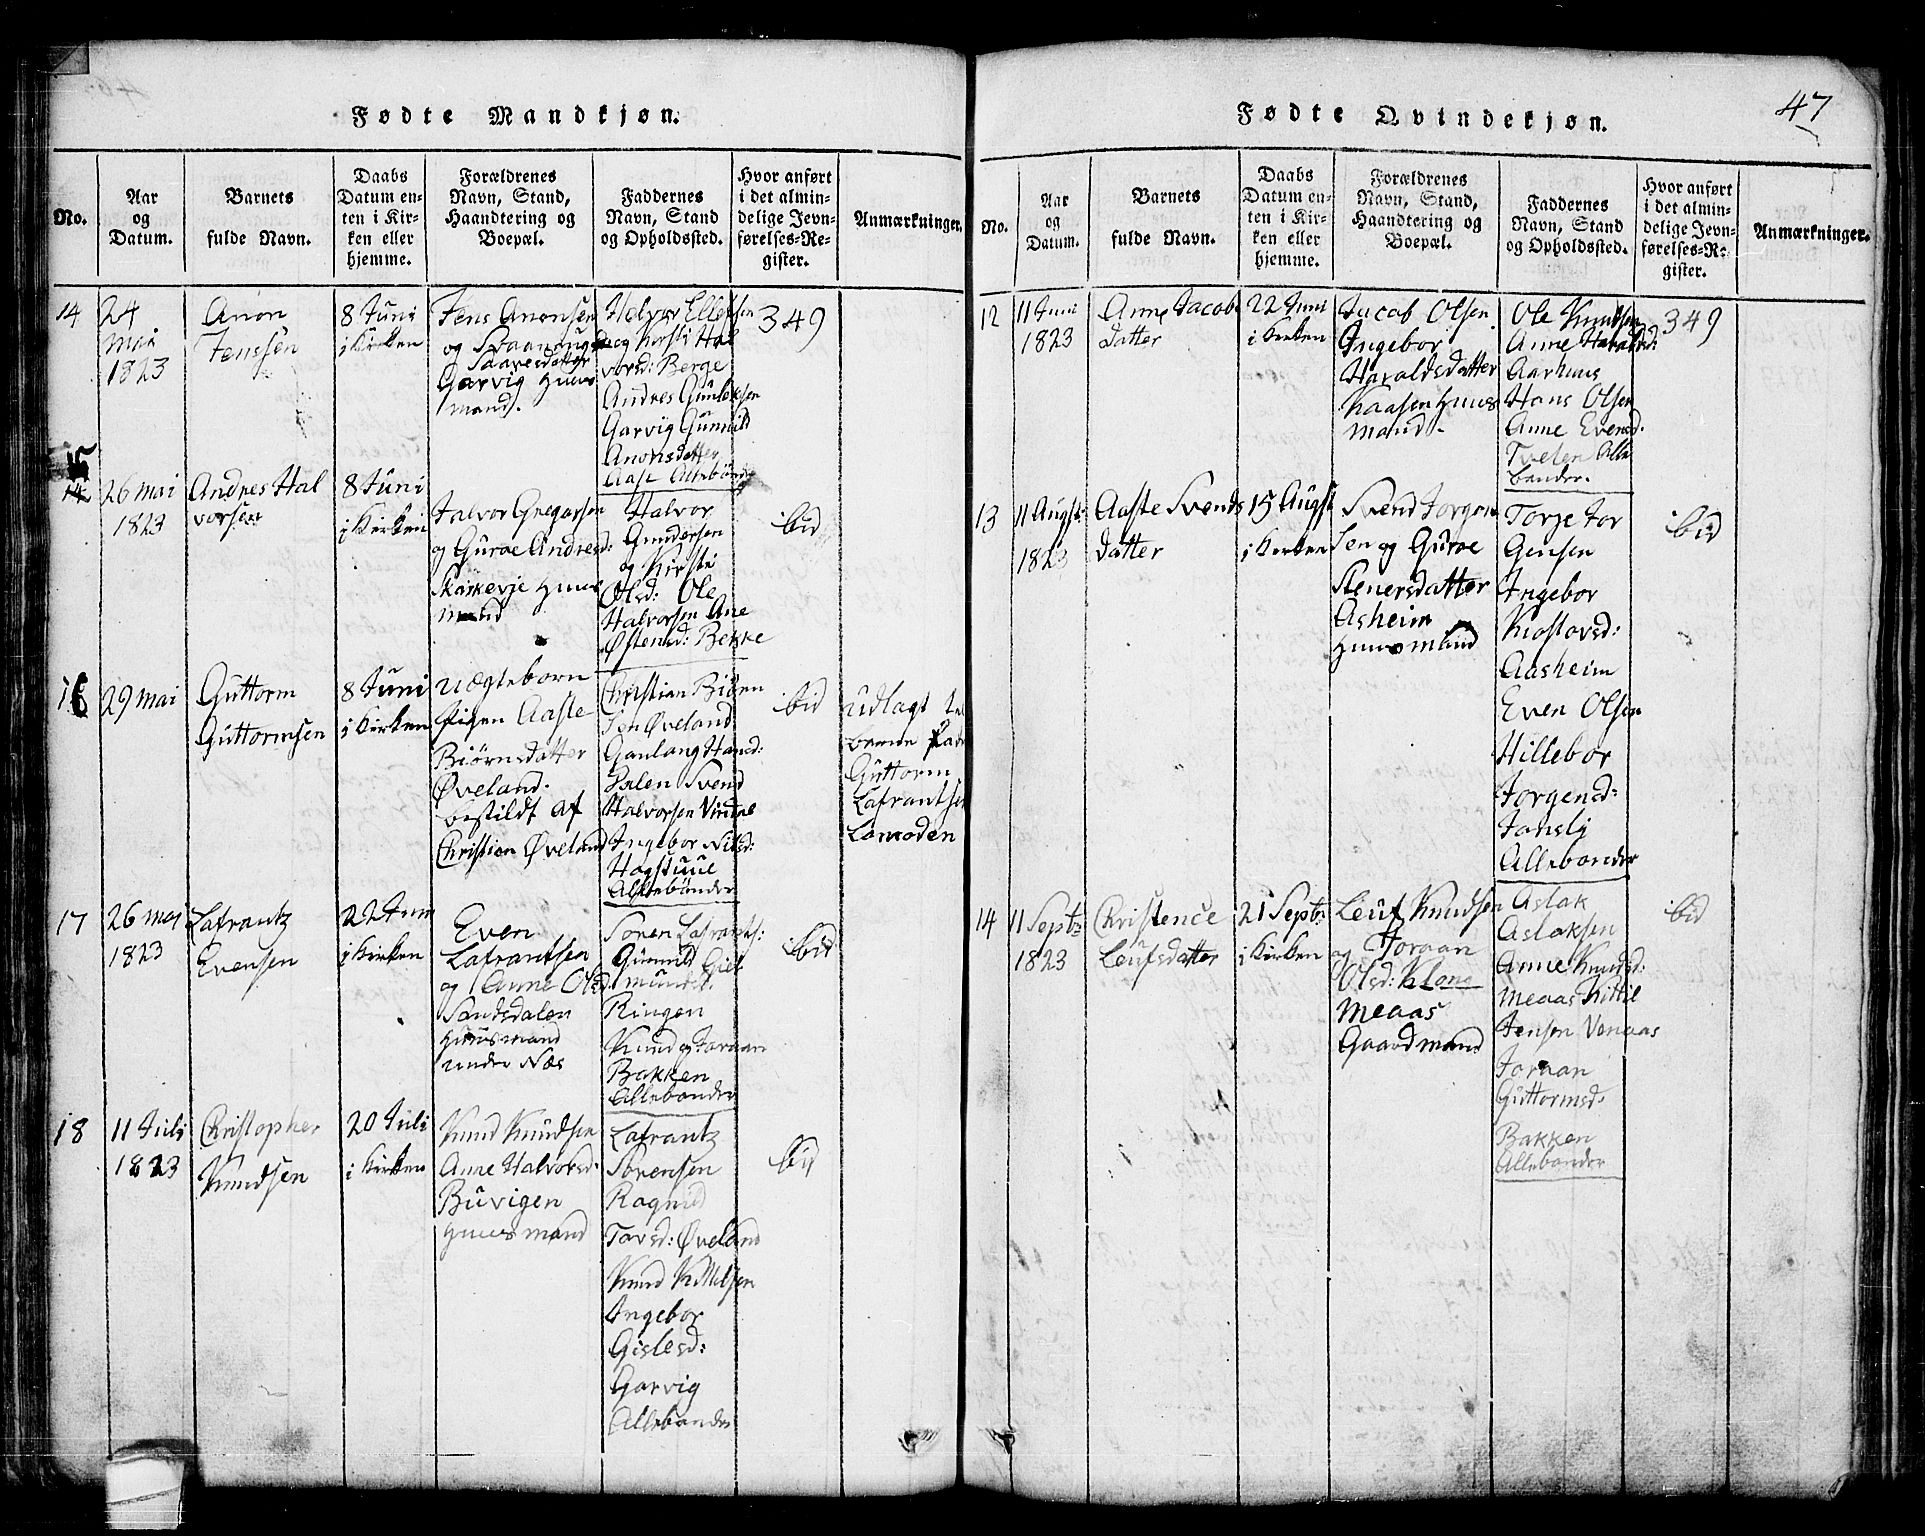 Fødte Mandkjøn.
No.
Aar
og
Datum.
Barnets
fulde Navn.
Daabs
Datum en-
ten i Kir-
ken eller
hjemme.
Forældrenes
Navn, Stand,
Haandtering og
Boepæl.
Faddernes
Navn, Stand
og Opholdssted.
Hvor anført
i det almin-
delige Jevn-
førelses-Re-
gister.
Anmærkninger.
14
24
mai
1823
Anon
Jenssen
8 Juni
i Kirken
Jens Anonsen
og
Saavesdatter
Garvig Huus
mand.
Halvor Ellefsen
og Kirsti Hal
vorsd: Berge
Andres Gunleksen
Garvig Gunnild
Anonsdatter
Aase Allebønder
349
15
26 mai
1823
Andres Hal
vorsen
8 Juni
i Kirken
Halvor Gregorsen
og Guroe Andresd:
Skaskevje Huus
mand
Halvor
Gundersen
og Kirsti
Olsd: Ole
Halvorsen Ane
Østensd: Bekke
ibid
16
29 mai
Guttorm
Guttormsen
8 Juni
i Kirken
Uægteborn
Pigen Aaste
Biørnsdatter
Øveland.
bestildt af
Christian Øveland
Christian Biøen
sen Øveland
Ganlaug Hansd:
Dalen Svend
Halvorsen
Ingebor Nilsd:
Hagstuul
Allebønder
ibid
udlagt til
barne fader
Guttorm
Lafrantsen
Lomoden
17
26 maj
1823
Lafrantz
Evensen
22 Juni
i Kirken
Even
Lafrantsen
og Anne Olsd:
Sandsdalen
Huusmand
under Næs
Søren Lafrants:
Gunnild
Ringen
Knud og Joraan
Bakken
Allebønder
ibid
18
11 Juli
1823
Christopher
Knudsen
20 Juli
i Kirken
Knud Knudsen
Anne Halvorsd:
Buvigen
Huusmand
Lafrantz
Sørensen
Ragnild
Torsd: Øveland
Knud Kittelsen
Ingebor
Gislesd:
Garvig
Allebønder
ibid
47
Fødte Qvindekjøn.
No.
Aar
og
Datum.
Barnets
fulde Navn.
Daabs
Datum en-
ten i Kir-
ken eller
hjemme.
Forældrenes
Navn, Stand,
Haandtering og
Boepæl.
Faddernes
Navn, Stand
og Opholdssted.
Hvor anført
i det almin-
delige Jevn-
førelses-Re-
gister.
Anmærkninger.
12
11 Juni
1823
Anne Jacobs
datter
22 Juni
i Kirken
Jacob Olsen
Ingebor
Haraldsdatter
Kaasen Huus
mand
Ole Knudsen
Anne Haraldsd:
Aarhuus
Hans Olsen
Anne Evensd.
Tveten Alle
bønder.
349
13
11 Augst:
1823
Aaste Svends
datter
15 Augst
i Kirken
Svend Jorgen
sen og Guroe
Stenersdatter
Asheim
Huusmand
Torge Jor
gensen
Ingebor
Kiostovsd:
Aasheim
Even Olsen
Hillebor
Jorgensd:
Jonsli
Allebønder
ibid
14
11 Septb:
1823
Christence
Leufsdatter
21 Septb:
i Kirken
Leuf Knudsen
og Joraan
Olsd: Klone
Meaas
Gaardmand
Aslak
Aslaksen
Anne Knudsd:
Meaas Kittil
Jensen Venaas
Joraan
Guttormsd:
Bakken
Allebønder
ibid